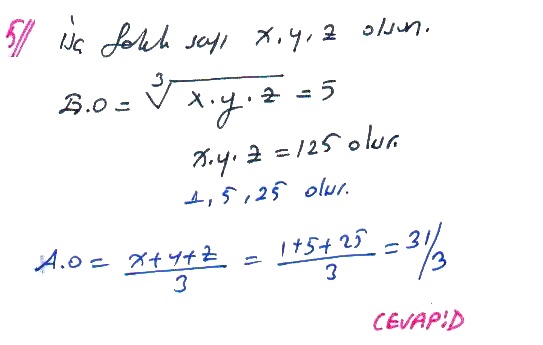 5// üç farklı sayı x, y, z olsun.
G.O = ∛(x.y.z) = 5
x.y.z = 125 olur.
1, 5, 25 olur.
A.O = (x+y+z)/3 = (1+5+25)/3 = 31/3
CEVAP:D